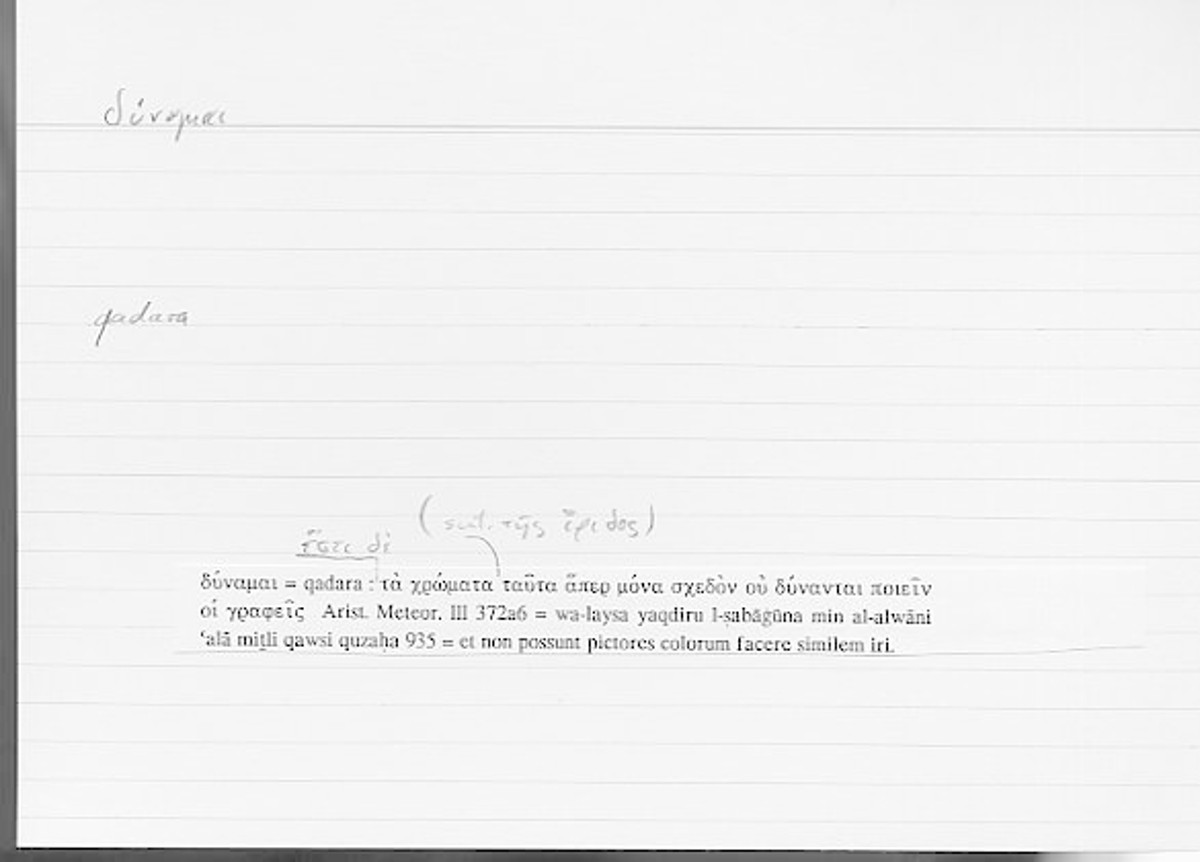 δύναμαι
qadara
(scil. τῆς ἴριδος)
ἔστι δὲ
δύναμαι = qadara : τὰ χρώματα ταῦτα ἅπερ μόνα σχεδὸν οὐ δύνανται ποιεῖν
οἱ γραφεῖς Arist. Meteor. III 372a6 = wa-laysa yaqdiru l-ṣabāġūna min al-alwāni
ʿalā miṯli qawsi quzaḥa 935 = et non possunt pictores colorum facere similem iri.